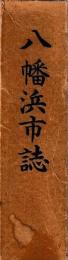 八幡浜市誌